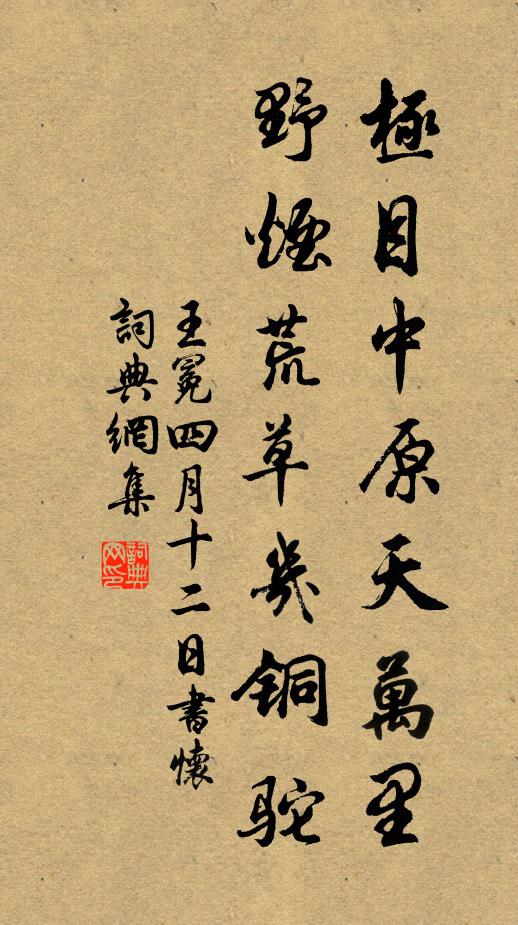 極目中原天萬里
野煙荒草幾銅駝
王冕四月十二日書懷
詞典網集
詞典網印